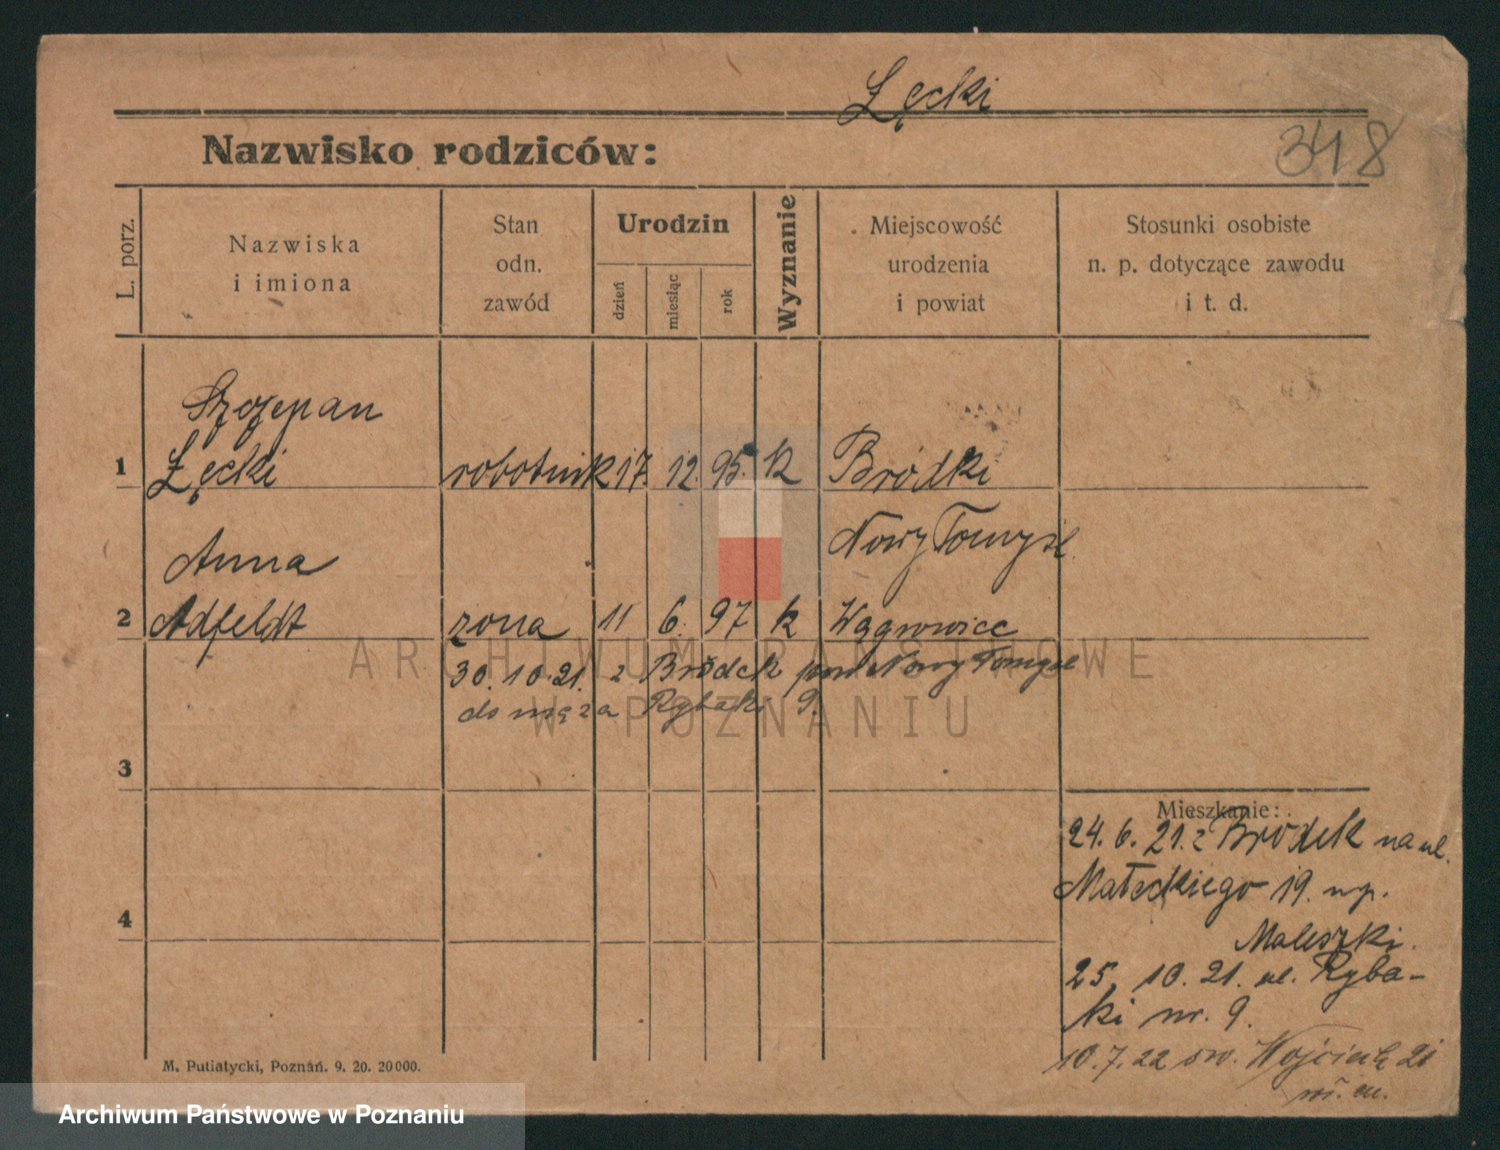 Łęcki
348
Nazwisko rodziców:
L. porz.
Nazwiska
i imiona
Stan
odn.
zawód
Urodzin
dzień
miesiąc
rok
Wyznanie
Miejscowość
urodzenia
i powiat
Stosunki osobiste
n. p. dotyczące zawodu
i t. d.
Szczepan
1 Łęcki robotnik 17. 12. 95. k Bródki
Nowy Tomyśl.
Anna
2 Adfeldt zona 11 6. 97 k Wągrowiec
30. 10. 21. z Bródek pow Nowy Tomyśl
do męża Rybaki 9.
3
Mieszkanie:
24. 6. 21. z Bródek na ul.
Małeckiego 19. u p.
4
Maleszki.
25. 10. 21. ul. Ryba-
ki nr. 9.
10. 7. 22 sw. Wojciech 21
M. Putiatycki, Poznań. 9. 20. 20000.
ARCHIWUM PAŃSTWOWE
W POZNANIU
Archiwum Państwowe w Poznaniu